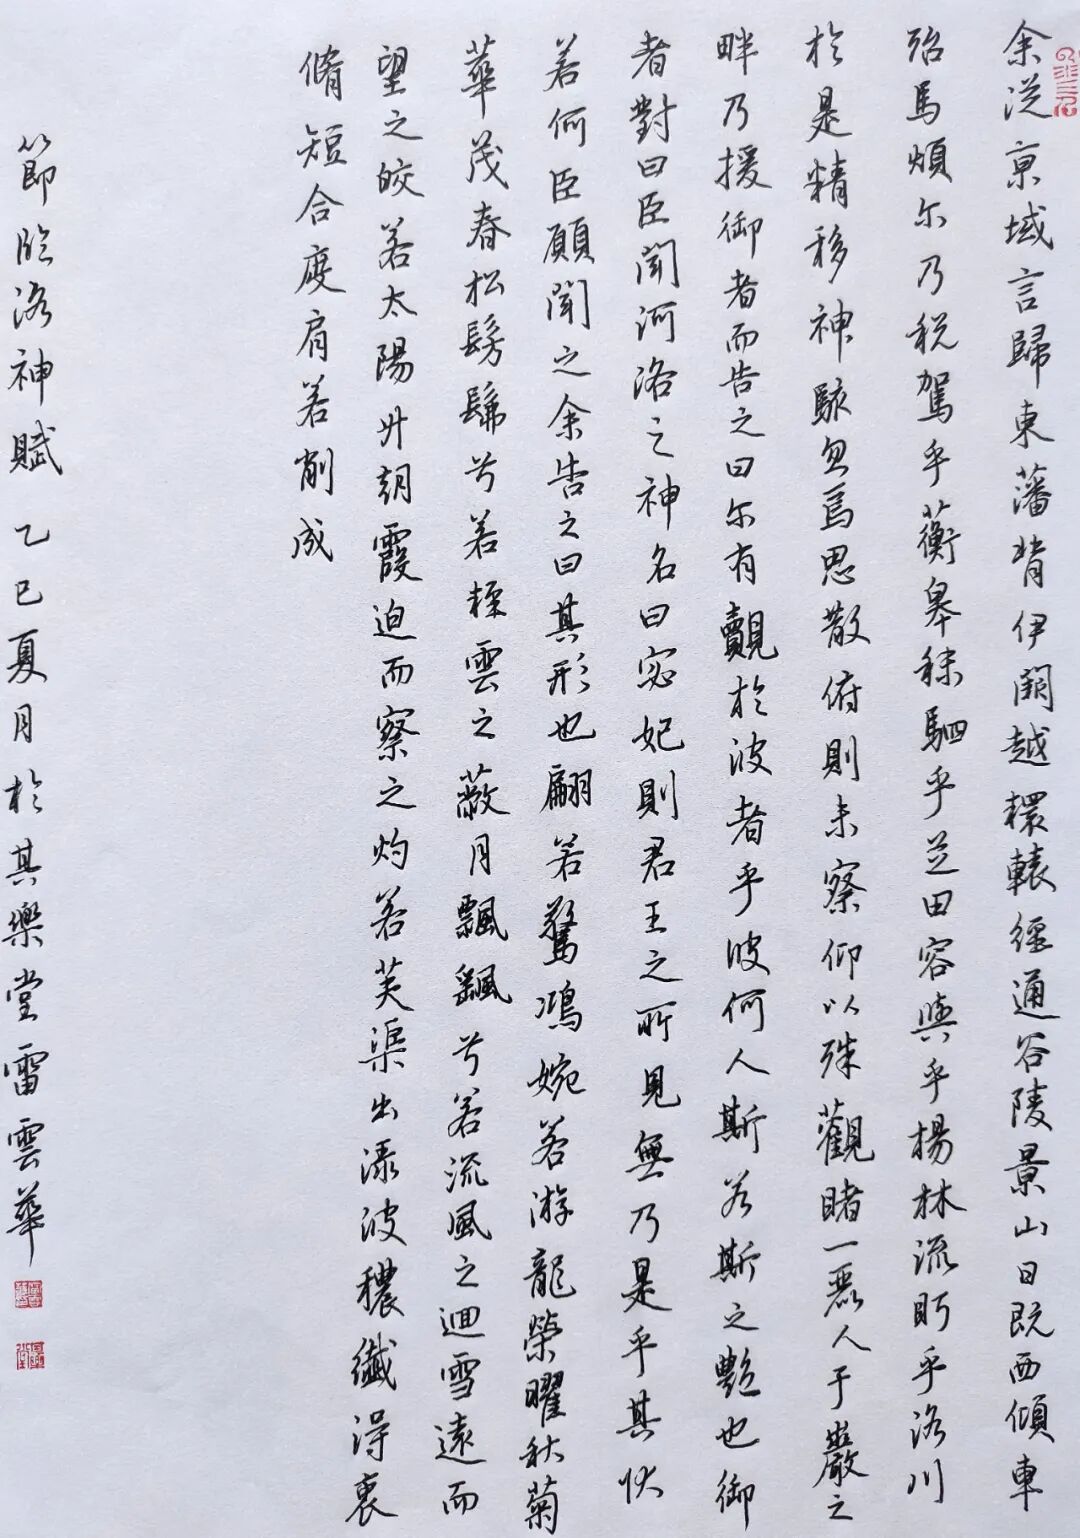 余從京域言歸東藩背伊闕越轘轅經通谷陵景山日既西傾車
殆馬煩尔乃税駕乎蘅皋秣駟乎芝田容與乎楊林流眄乎洛川
於是精移神駭忽焉思散俯則未察仰以殊觀睹一麗人于巖之
畔乃援御者而告之曰尔有覿於彼者乎彼何人斯若斯之艷也御
者對曰臣聞河洛之神名曰宓妃則君王之所見無乃是乎其狀
若何臣願聞之余告之曰其形也翩若驚鴻婉若游龍榮曜秋菊
華茂春松髣髴兮若輕雲之蔽月飄颻兮若流風之迴雪遠而
望之皎若太陽升朝霞迫而察之灼若芙渠出渌波穠纖得衷
脩短合度肩若削成
節臨洛神賦 乙巳夏月於其樂堂雷雲華